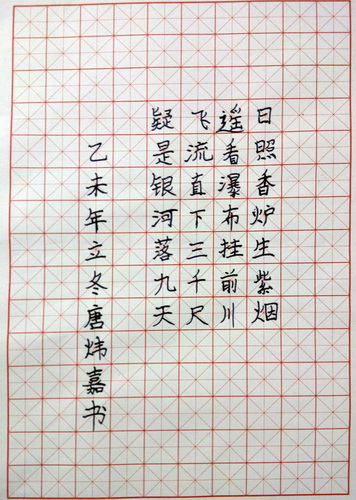 日照香炉生紫烟
遥看瀑布挂前川
飞流直下三千尺
疑是银河落九天
乙未年立冬唐炜嘉书